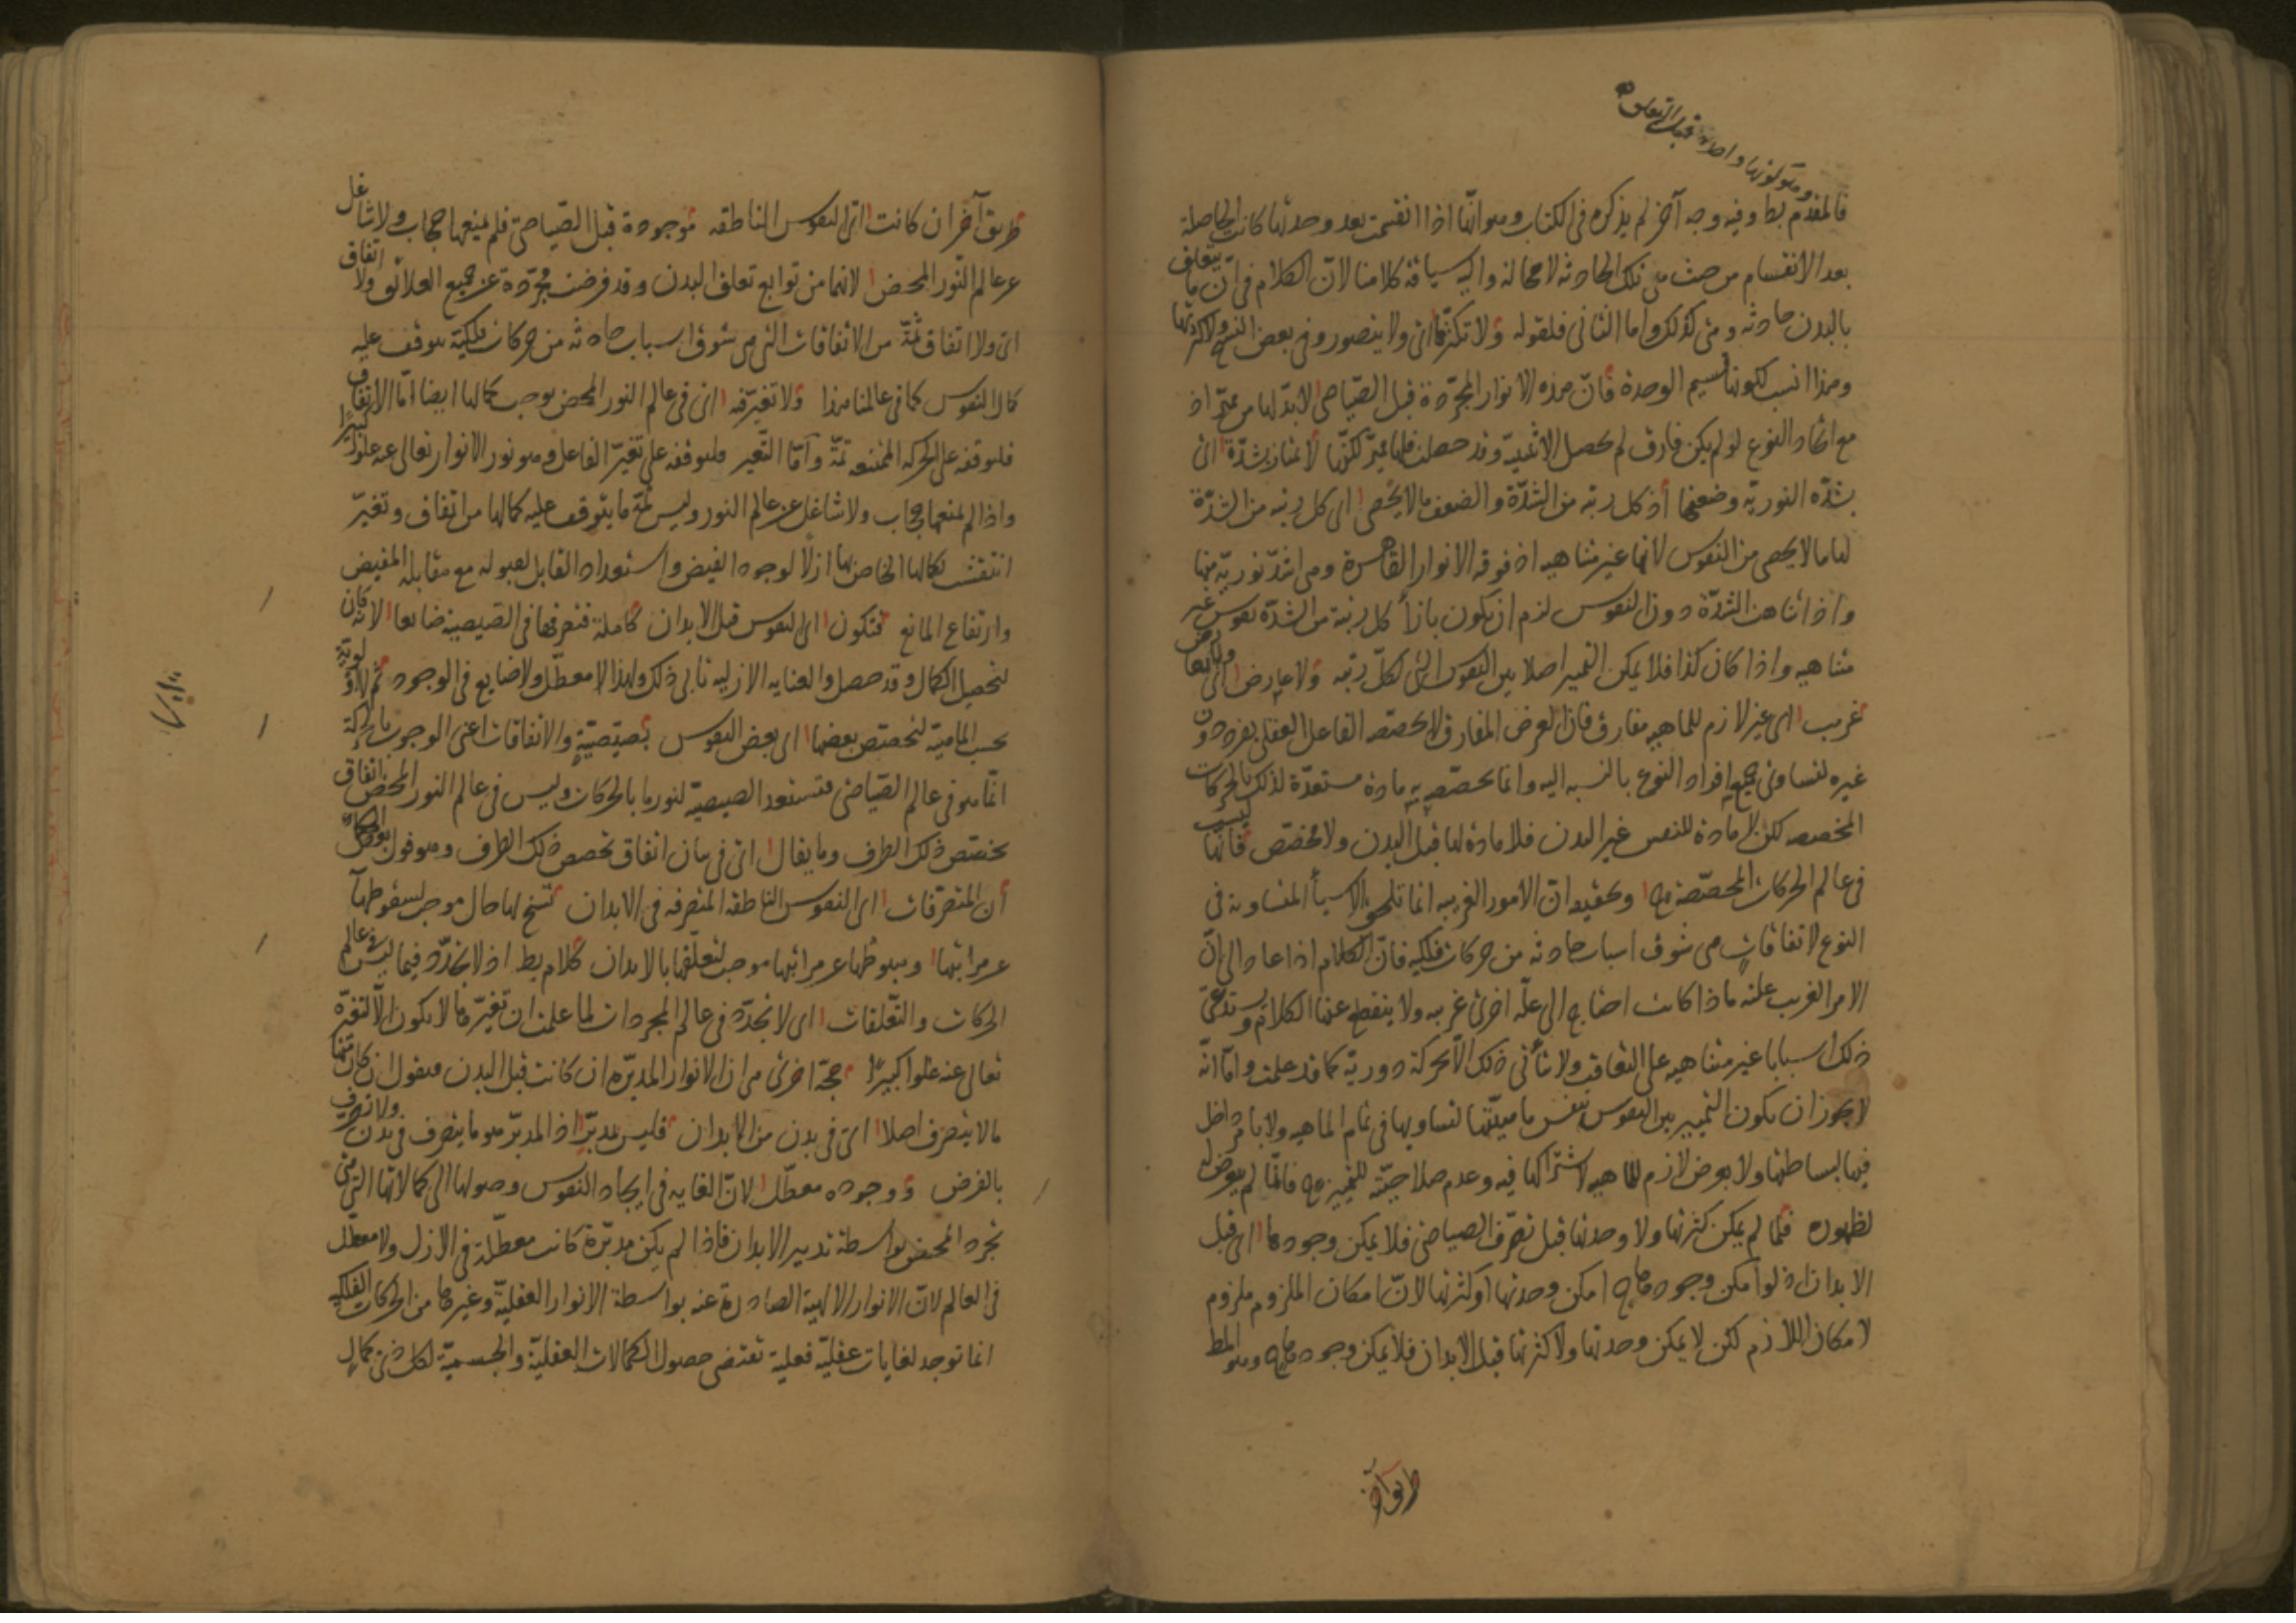 وهو كونها واحدة قبل التعلق
فالمقدم بط وفيه وجه آخر لم يذكره فى الكتاب وهو انها اذا انقسمت بعد وحدتها كانت الحاصلة
بعد الانقسام من حيث هى تلك الحادثه لا محالة واليه سياقة كلامنا لان الكلام فى ان ما يتعلق
بالبدن حادثه وهى كذلك واما الثانى فلقوله ولا تكثرها اى ولا يتصور وفى بعض النسخ ولا كثرتها
وهذا انسب لكونها قسيم الوحدة فان هذه الانوار المجردة قبل الصياصى لابد لها من مميز اذ
مع اتحاد النوع لو لم يكن فارق لم تحصل الاثنينية وقد حصلت فلها مميز لكنها لا تمتاز بشدة اى
بشدة النورية وضعفها اذ كل رتبه من الشدة والضعف ما لا يحصى اى كل رتبه من الشدة
لها ما لا يحصى من النفوس لانها غير متناهيه اذ فوقه الانوار القاهرة وهى اشد نورية منها
واذا تناهت الشدة دون النفوس لزم ان يكون بازاء كل رتبة من الشدة نفوس غير
متناهيه واذا كان كذا فلا يمكن التمييز اصلا بين النفوس التى لكل رتبه ولا عارض
غريب اى غير لازم للماهيه مفارق فان العرض المفارق لا يخصصه الفاعل العقلى بفرد دون
غيره لتساوى جميع افراد النوع بالنسبه اليه وانما يخصصه به مادة مستعدة لذلك بالحركات
المخصصه لكن لا مادة للنفس غير البدن فلا مادة لها قبل البدن ولا مخصص فانها ليست
فى عالم الحركات المخصصة ح وتحقيقه ان الامور الغريبه انما تلحق الاشياء المتساوية فى
النوع لاتفاقات هى شوق اسباب حادثه من حركات فلكيه فان الكلام اذا عاد الى ان
الامر الغريب علته ماذا كانت احتاج الى علة اخرى غريبه ولا ينقطع عنها الكلام ويستدعى
ذلك اسبابا غير متناهيه على التعاقب ولا يتأتى ذلك الا بحركة دورية كما قد علمت واما انه
لا يجوز ان يكون التمييز بين النفوس بنفس ماهيتها لتساويها فى تمام الماهيه ولا بامر داخل
فيها لبساطتها ولا بعرض لازم للماهيه لاشتراكها فيه وعدم صلاحيته للتمييز ح فانما لم يتعرض له
لظهوره فلما لم يمكن كثرتها ولا وحدتها قبل تصرف الصياصى فلا يمكن وجودها اى قبل
الابدان اذ لو امكن وجودها ح امكن وحدتها او كثرتها لان امكان الملزوم ملزوم
لامكان اللازم لكن لا يمكن وحدتها ولا كثرتها قبل الابدان فلا يمكن وجودها ح وهو المط
طريق آخر
طريق آخر ان كانت اى النفوس الناطقه موجودة قبل الصياصى فلم يمنعها حجاب ولا شاغل
عن عالم النور المحض لانهما من توابع تعلق البدن وقد فرضت مجردة عن جميع العلائق ولا اتفاق
اى ولا اتفاق ثمة من الاتفاقات التى هى شوق اسباب حادثه من حركات فلكية يتوقف عليه
كمال النفوس كما فى عالمنا هذا ولا تغير فيه اى فى عالم النور المحض يوجب كمالها ايضا اما الاتفاق
فلتوقفه على الحركه الممتنعه ثمة واما التغير فلتوقفه على تغير الفاعل وهو نور الانوار تعالى عنه علوا كبيرا
واذا لم يمنعها حجاب ولا شاغل عن عالم النور وليس ثمة ما يتوقف عليه كمالها من اتفاق وتغير
انتقشت بكمالها الخاص بها ازلا لوجود الفيض واستعداد القابل لقبوله مع مقابلة المفيض
وارتفاع المانع فتكون اى النفوس قبل الابدان كاملة فتصرفها فى الصيصية ضايعا لانه كان
لتحصيل الكمال وقد حصل والعنايه الازليه تابى ذلك ولهذا لا معطل ولا ضايع فى الوجود ثم لا اولوية
بحسب الماهيه لتخصص بعضها اى بعض النفوس بصيصية والاتفاقات اعنى الوجوب بالحركة
انما هو فى عالم الصياصى فتستعد الصيصية لنور ما بالحركات وليس فى عالم النور المحض اتفاق
يخصص ذلك الطرف وما يقال اى فى بيان اتفاق تخصص ذلك الطرف وهو قول بعض الحكماء
ان المتصرفات اى النفوس الناطقه المتصرفه فى الابدان تسنح لها حال موجب لسقوطها
عن مراتبها وهبوطها عن مراتبها موجب لتعلقها بالابدان كلام بط اذ لا تجدد فيما ليس فى عالم
الحركات والتعلقات اى لا تجدد فى عالم المجردات لما علمت ان تغيرها لا يكون الا لتغيره
تعالى عنه علوا كبيرا حجة اخرى هى ان الانوار المدبرة ان كانت قبل البدن فنقول ان كان منها
ما لا يتصرف اصلا اى فى بدن من الابدان فليس بمدبر اذ المدبر هو ما يتصرف فى بدن ولا تصرف
بالفرض ووجوده معطل لان الغايه فى ايجاد النفوس وصولها الى كمالاتها التى هى
تجرد المحض بواسطة تدبير الابدان فاذا لم يكن مدبرة كانت معطلة فى الازل ولا معطل
فى العالم لان الانوار الالهية الصادرة عنه بواسطة الانوار العقلية وغيرها من الحركات الفلكيه
انما توجد لغايات عقلية فعلية تقتضى حصول الكمالات العقلية والجسمية لكل ذى كمال